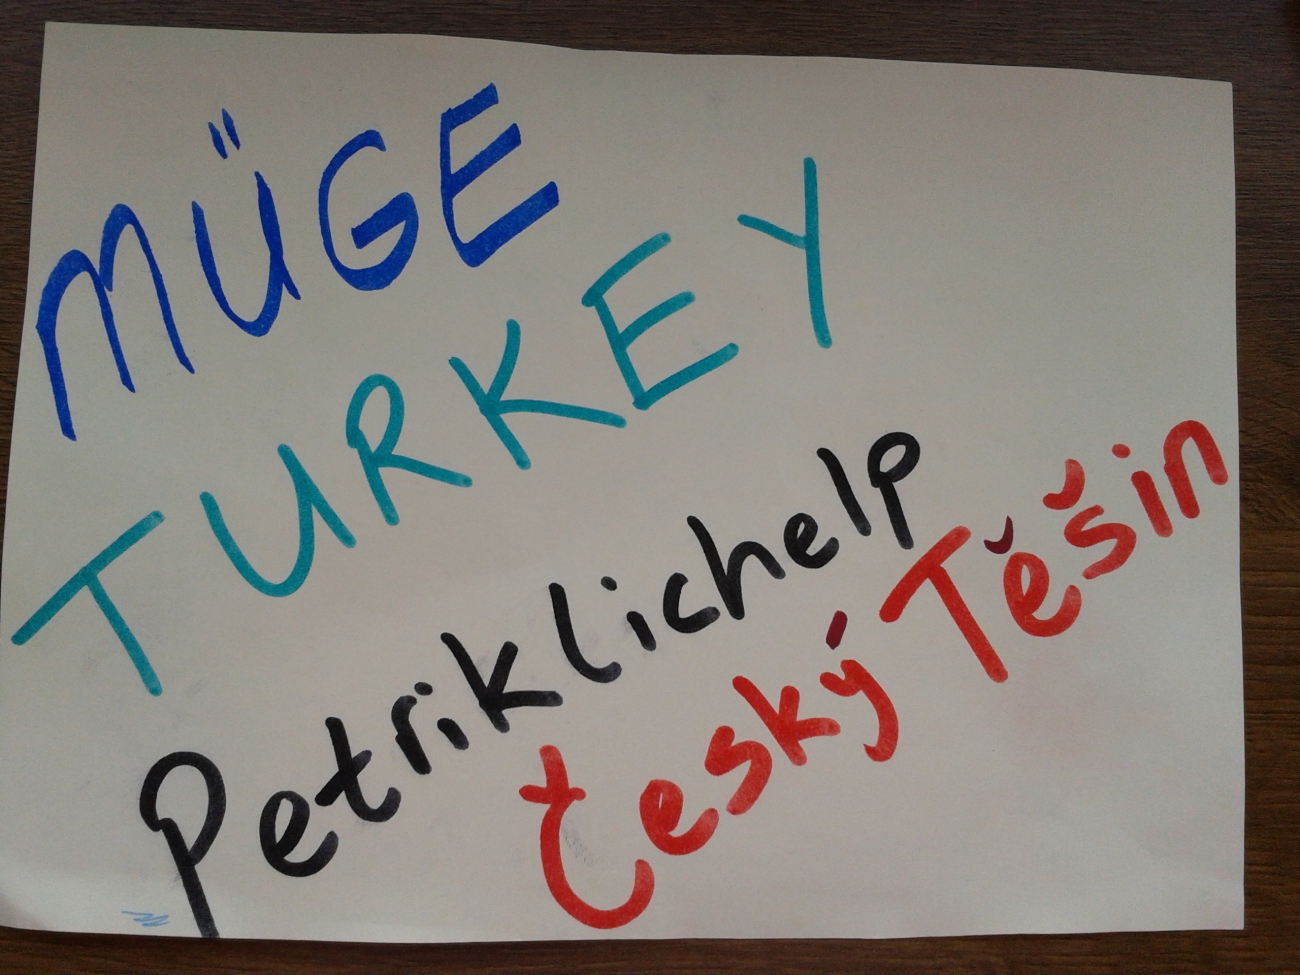 MÜGE
TURKEY
Petriklichelp
Český Těšin